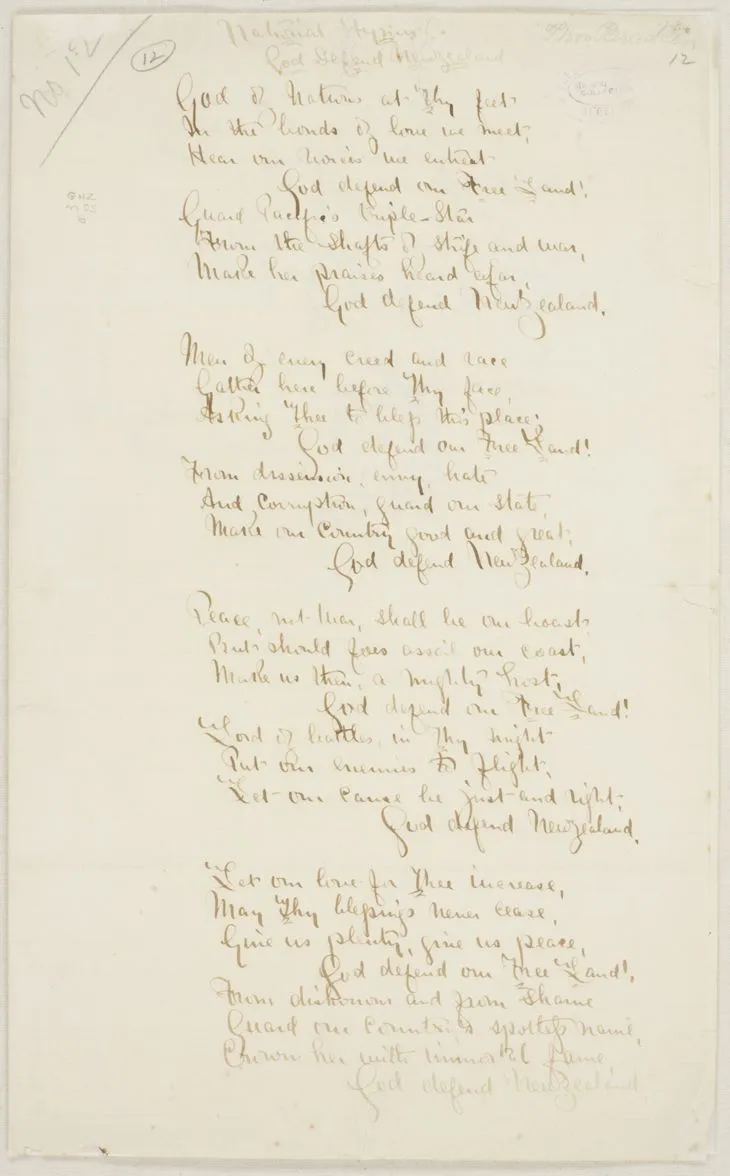 No 12
12
National Hymn:
Thos Bracken
God Defend New Zealand
12
God of Nations at Thy feet
In the bonds of love we meet,
Hear our voices we entreat
God defend our Free Land!
Guard Pacific's triple-Star
From the Shafts of strife and war,
Make her praises heard afar,
God defend New Zealand.
Men of every creed and race
Gather here before Thy face,
Asking Thee to bless this place;
God defend our Free Land!
From dissension, envy, hate
And Corruption, guard our State,
Make our Country good and great;
God defend New Zealand.
Peace, not War, shall be our boast
But should foes assail our coast,
Make us then, a mighty host,
God defend our Free Land!
Lord of battles, in Thy might
Put our enemies to flight,
Let our cause be just and right,
God defend New Zealand.
Let our love for Thee increase,
May Thy blessings never cease,
Give us plenty, give us peace,
God defend our Free Land!
From dishonour and from Shame
Guard our Country's spotless name,
Crown her with immortal fame,
God defend New Zealand